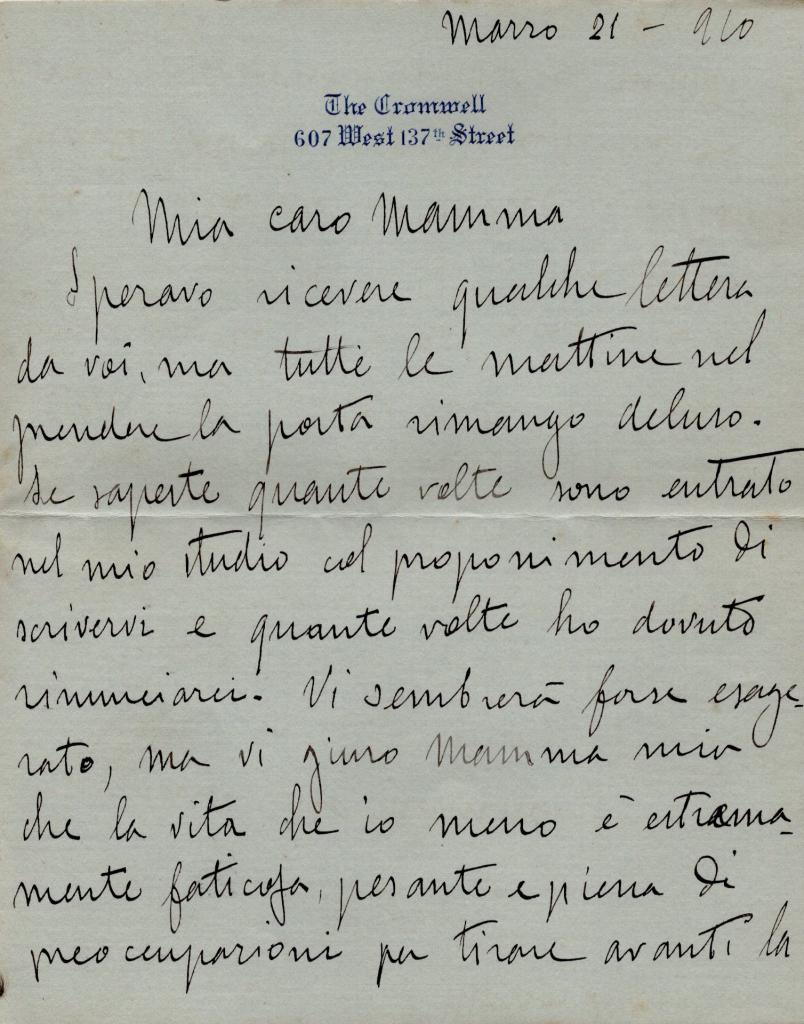 Marzo 21 - 910
The Cromwell
607 West 137th Street
Mia cara Mamma
Speravo ricevere qualche lettera
da voi, ma tutte le mattine nel
prendere la posta rimango deluso.
Se sapeste quante volte sono entrato
nel mio studio col proponimento di
scrivervi e quante volte ho dovuto
rinunciarci. Vi sembrerà forse esage-
rato, ma vi giuro Mamma mia
che la vita che io meno è estrema-
mente faticosa, pesante e piena di
preoccupazioni per tirare avanti la